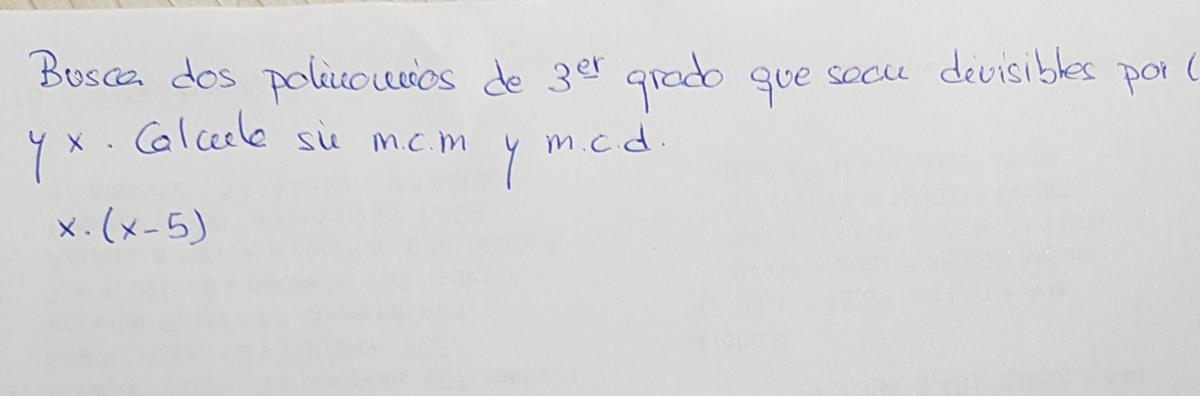 Busca dos polinomios de 3er grado que sean divisibles por (
y x. Calcula su m.c.m y m.c.d.
x.(x-5)